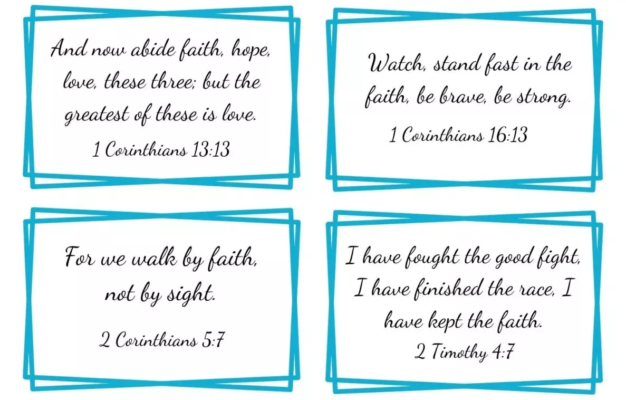 And now abide faith, hope,
love, these three; but the
greatest of these is love.
1 Corinthians 13:13
Watch, stand fast in the
faith, be brave, be strong.
1 Corinthians 16:13
For we walk by faith,
not by sight.
2 Corinthians 5:7
I have fought the good fight,
I have finished the race, I
have kept the faith.
2 Timothy 4:7